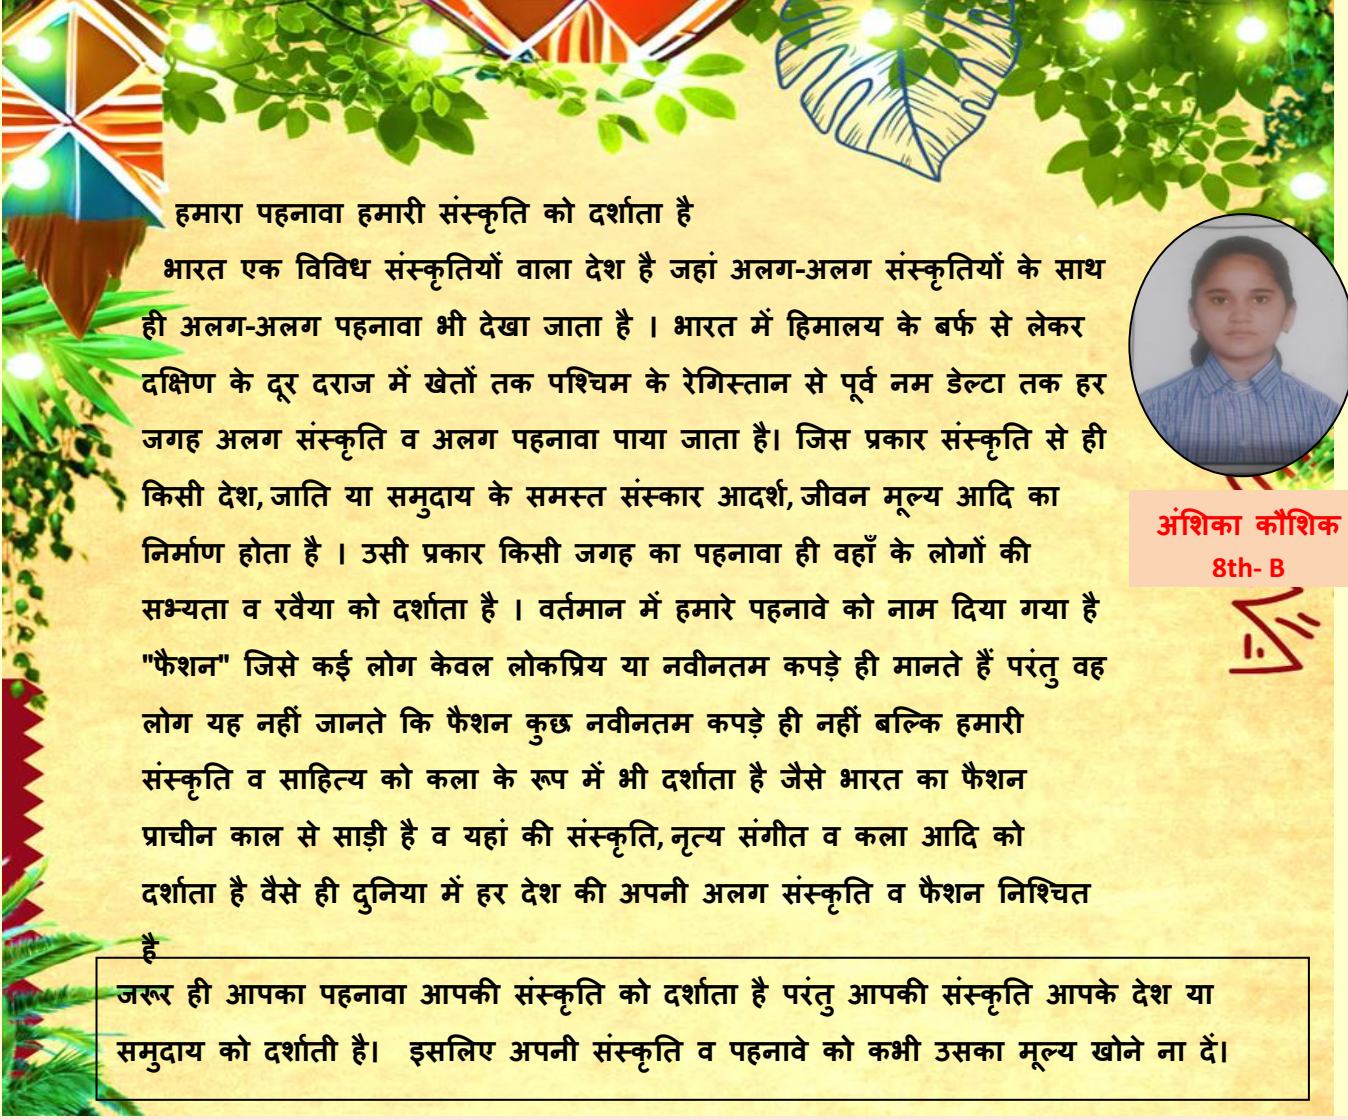 हमारा पहनावा हमारी संस्कृति को दर्शाता है
भारत एक विविध संस्कृतियों वाला देश है जहां अलग-अलग संस्कृतियों के साथ
ही अलग-अलग पहनावा भी देखा जाता है । भारत में हिमालय के बर्फ से लेकर
दक्षिण के दूर दराज में खेतों तक पश्चिम के रेगिस्तान से पूर्व नम डेल्टा तक हर
जगह अलग संस्कृति व अलग पहनावा पाया जाता है। जिस प्रकार संस्कृति से ही
किसी देश, जाति या समुदाय के समस्त संस्कार आदर्श, जीवन मूल्य आदि का
निर्माण होता है । उसी प्रकार किसी जगह का पहनावा ही वहाँ के लोगों की
सभ्यता व रवैया को दर्शाता है । वर्तमान में हमारे पहनावे को नाम दिया गया है
"फैशन" जिसे कई लोग केवल लोकप्रिय या नवीनतम कपड़े ही मानते हैं परंतु वह
लोग यह नहीं जानते कि फैशन कुछ नवीनतम कपड़े ही नहीं बल्कि हमारी
संस्कृति व साहित्य को कला के रूप में भी दर्शाता है जैसे भारत का फैशन
प्राचीन काल से साड़ी है व यहां की संस्कृति, नृत्य संगीत व कला आदि को
दर्शाता है वैसे ही दुनिया में हर देश की अपनी अलग संस्कृति व फैशन निश्चित
है
जरूर ही आपका पहनावा आपकी संस्कृति को दर्शाता है परंतु आपकी संस्कृति आपके देश या
समुदाय को दर्शाती है। इसलिए अपनी संस्कृति व पहनावे को कभी उसका मूल्य खोने ना दें।
अंशिका कौशिक
8th- B